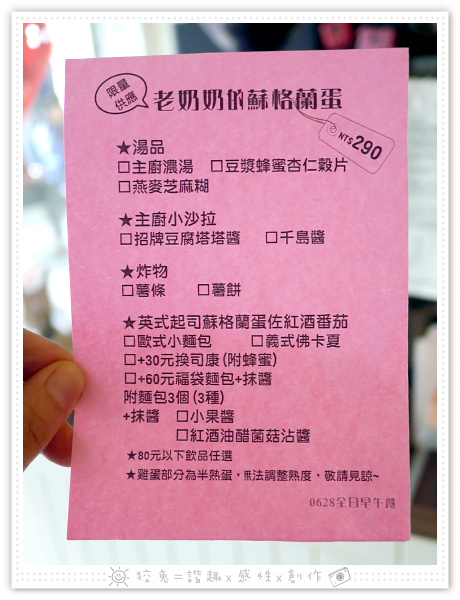 限量
供應
老奶奶的蘇格蘭蛋
NT$290
★湯品
☐主廚濃湯 ☐豆漿蜂蜜杏仁穀片
☐燕麥芝麻糊
★主廚小沙拉
☐招牌豆腐塔塔醬 ☐千島醬
★炸物
☐薯條 ☐薯餅
★英式起司蘇格蘭蛋佐紅酒番茄
☐歐式小麵包 ☐義式佛卡夏
☐+30元換司康(附蜂蜜)
☐+60元福袋麵包+抹醬
附麵包3個(3種)
+抹醬 ☐小果醬
☐紅酒油醋菌菇沾醬
★80元以下飲品任選
★雞蛋部分為半熟蛋，無法調整熟度，敬請見諒~
0628全日早午餐
狡兔=諧趣x感性x創作